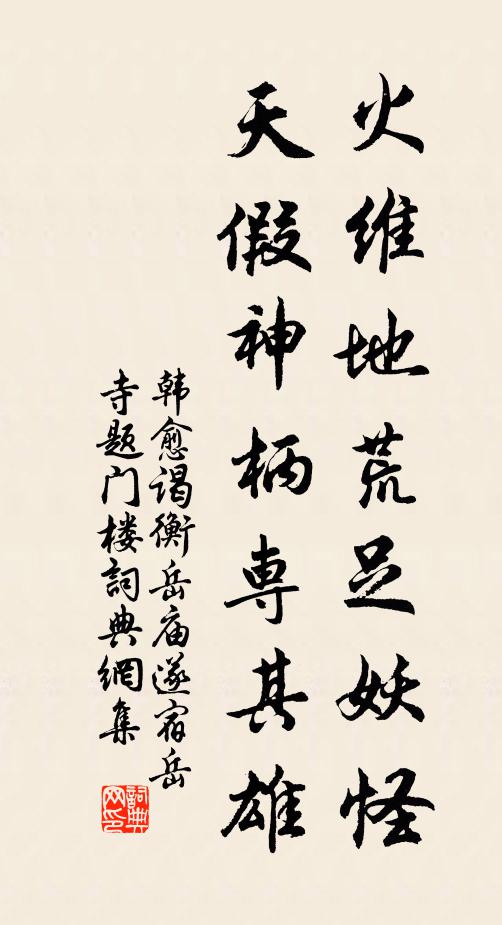 火维地荒足妖怪
天假神柄専其雄
韩愈谒衡岳庙遂宿岳
寺题门楼詞典網集
詞典
网印